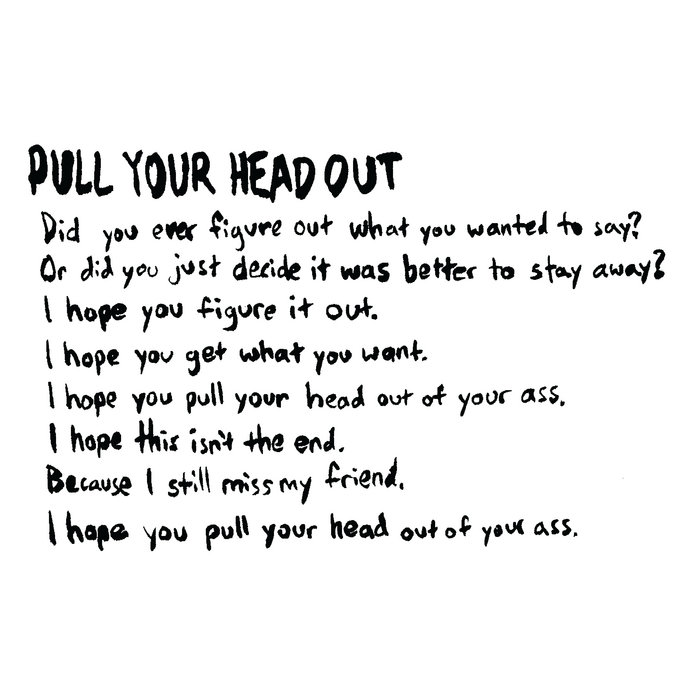 PULL YOUR HEAD OUT
Did you ever figure out what you wanted to say?
Or did you just decide it was better to stay away?
I hope you figure it out.
I hope you get what you want.
I hope you pull your head out of your ass.
I hope this isn't the end.
Because I still miss my friend.
I hope you pull your head out of your ass.